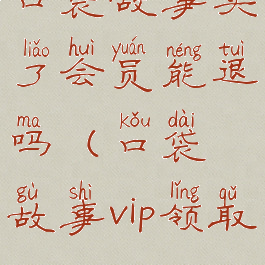 口袋故事买
liǎo huì yuán néng tuì
了会员能退
ma kǒu dài
吗（口袋
gù shì lǐng qǔ
故事vip领取